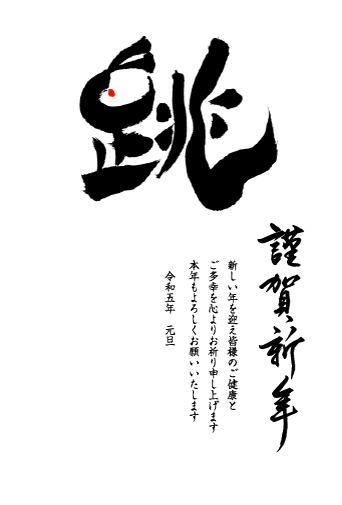 跳
謹賀新年
新しい年を迎え皆様のご健康と
ご多幸を心よりお祈り申し上げます
本年もよろしくお願いいたします
令和五年　元旦